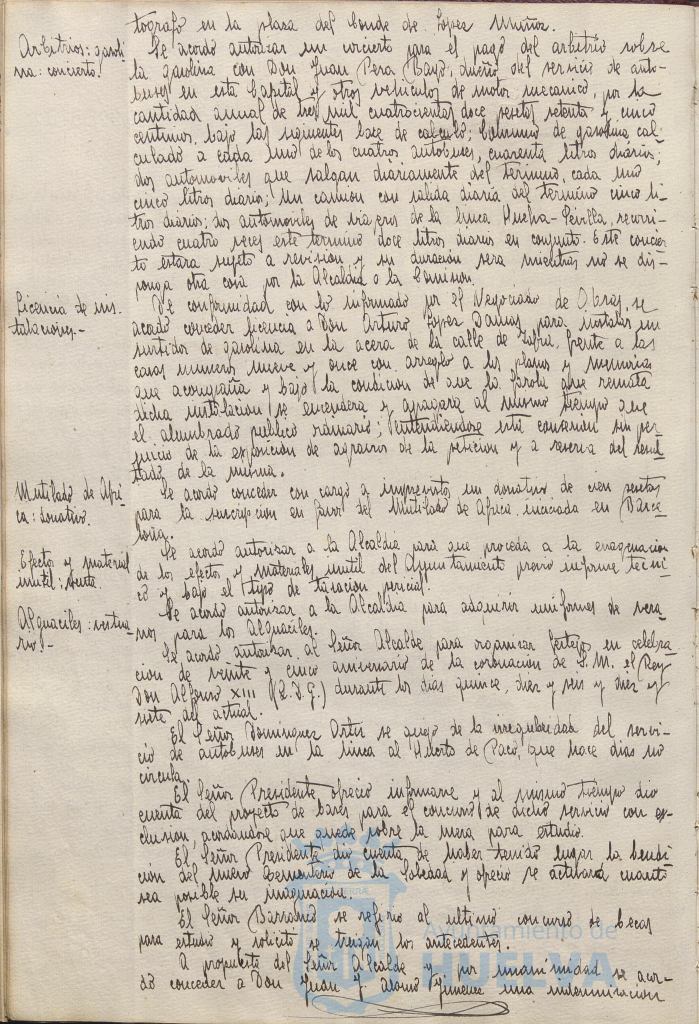 tografo en la plaza del Conde de Lopez Muñoz.
Arbitrios: gasoli
na: concierto.
Se acordó autorizar un concierto para el pago del arbitrio sobre
la gasolina con Don Juan Pera Bayo, dueño del servicio de auto-
buses en esta Capital y otros vehiculos de motor mecanico, por la
cantidad anual de tres mil cuatrocientas doce pesetas setenta y cinco
centimos, bajo las siguientes base de calculo: Consumo de gasolina cal-
culado a cada uno de los cuatros autobuses, cuarenta litros diarios;
dos automoviles que salgan diariamente del termino, cada uno
cinco litros diarios; un camion con salida diaria del termino cinco li-
tros diarios; dos automoviles de viajeros de la linea Huelva-Sevilla, recorri-
endo cuatro veces este termino doce litros diarios en conjunto. Este concier-
to estara sujeto a revision y su duración sera mientras no se dis-
ponga otra cosa por la Alcaldia o la Comision.
Licencia de ins-
talaciones.-
De conformidad con lo informado por el Negociado de Obras, se
acordó conceder licencia a Don Arturo Lopez Damas para instalar un
surtidor de gasolina en la acera de la calle de Zafra, frente a las
casas numeros nueve y once con arreglo a los planos y memorias
que acompaña y bajo la condicion de que la farola que remata
dicha instalacion se encendera y apagara al mismo tiempo que
el alumbrado publico ordinario; entendiendose esta concesion sin per
juicio de la exposicion de agravios de la peticion y a reserva del resul-
tado de la misma.
Mutilado de Afri-
ca: donativo.
Se acordó conceder con cargo a imprevistos un donativo de cien pesetas
para la suscripcion en favor del Mutilado de Africa iniciada en Barce
lona.
Efectos y material
inutil: venta.
Se acordó autorizar a la Alcaldia para que proceda a la enagenacion
de los efectos y materiales inutil del Ayuntamiento previo informe tecni-
co y bajo el tipo de tasacion pericial.
Alguaciles: vestua
rio.-
Se acordó autorizar a la Alcaldia para adquirir uniformes de vera-
nos para los Alguaciles.
Se acordó autorizar al Señor Alcalde para organizar festejos en celebra-
cion de veinte y cinco aniversario de la coronacion de S. M. el Rey
Don Alfonso XIII (Q. D. G.) durante los dias quince, diez y seis y diez y
siete del actual.
El Señor Dominguez Ortiz se quejo de la irregularidad del servi-
cio de autobuses en la linea al Huerto de Paco, que hace dias no
circula.
El Señor Presidente ofreció informarse y al mismo tiempo dio
cuenta del proyecto de bases para el concurso de dicho servicio con ex-
clusion, acordandose que quede sobre la mesa para estudio.
El Señor Presidente dio cuenta de haber tenido lugar la bendi-
ción del nuevo Cementerio de la Soledad y ofreció se activara cuanto
sea posible su inauguracion.
El Señor Barranco se refirio al ultimo concurso de becas
para estudio y solicito se traigan los antecedentes.
A propuesta del Señor Alcalde y por unanimidad se acor-
dó conceder a Don Juan J. Alonso Jimenez una indemnizacion
Ayuntamiento de
HUELVA